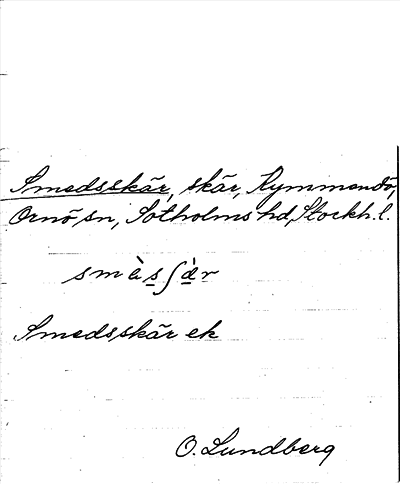 Smedsskär, skär, Kymmendö,
Ornö sn, Sotholms hd, Stockh. l.
smès∫ὰ̱r
Smedsskär ek
O. Lundberg